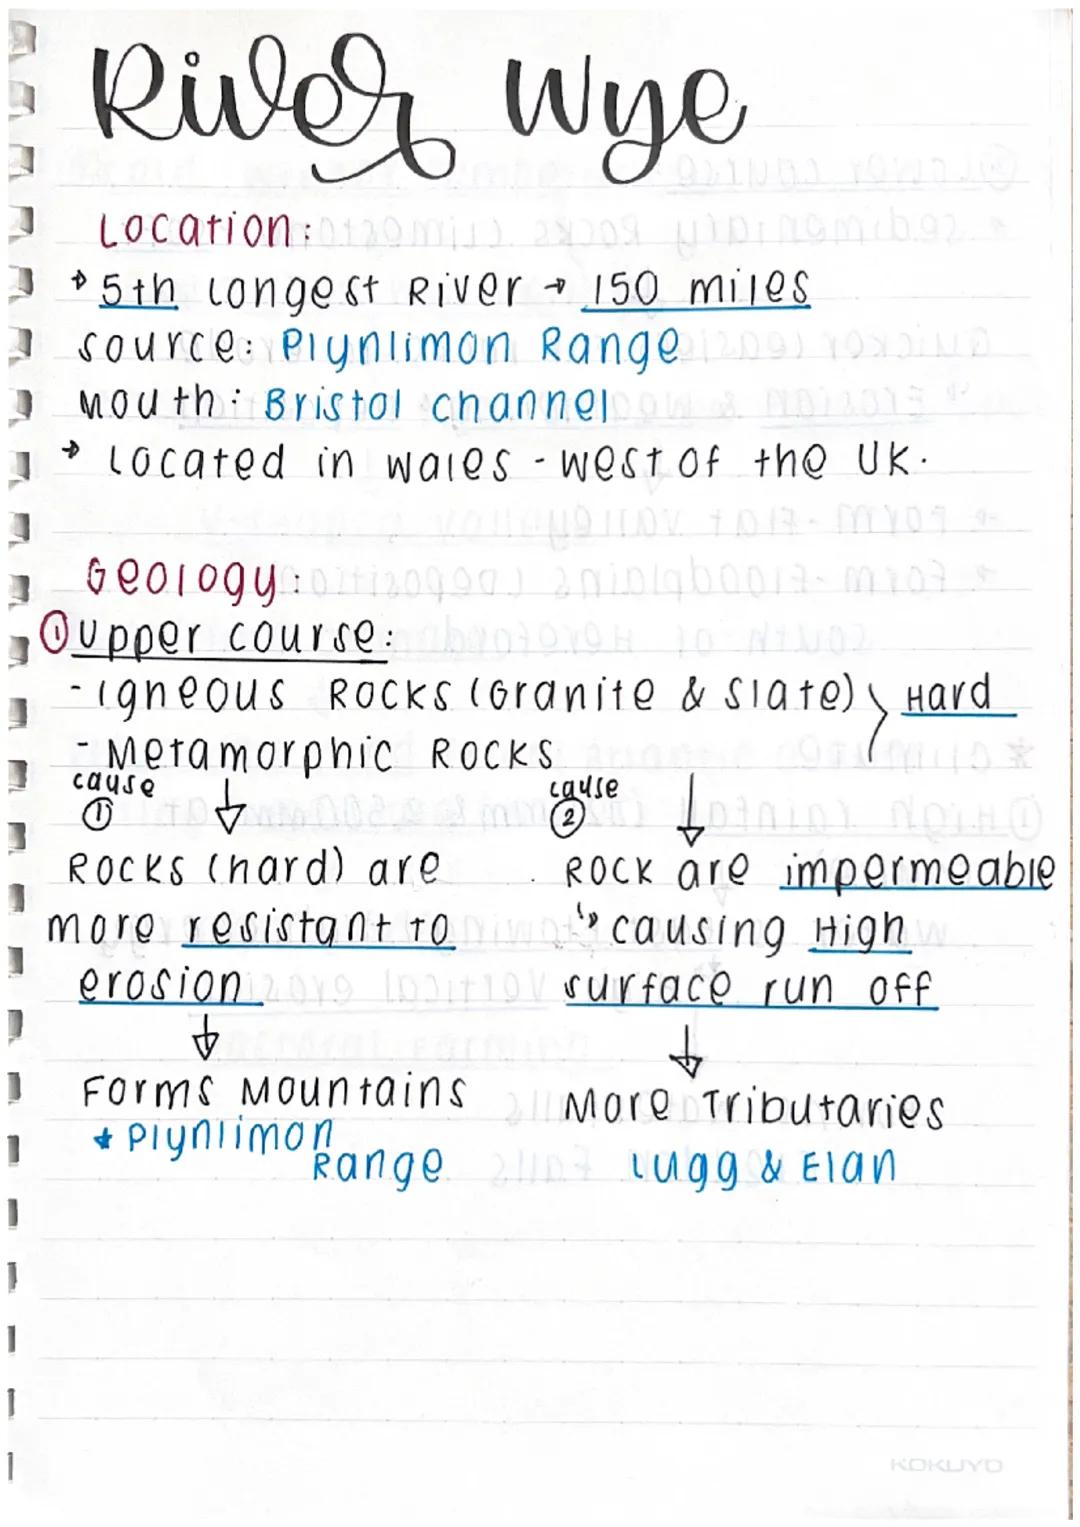 River Wye
Location:
→ 5th Longest River → 150 miles
source: Plynlimon Range
Mouth: Bristol channel
→ Located in Wales - west of the UK.
Geology:
① Upper course:
- Igneous Rocks (Granite & Slate) } Hard
- Metamorphic Rocks
cause ① ↓
Rocks (hard) are
more resistant to
erosion
↓
Forms Mountains
* Plynlimon
Range
cause ② ↓
Rock are impermeable
↳ causing High
surface run off
↓
More Tributaries
Lugg & Elan
KOKUYO